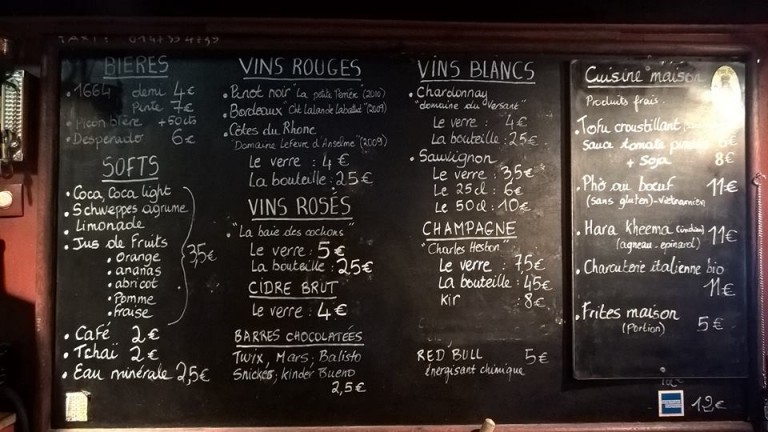 BIERES
. 1664 demi 4€
Pinte 7€
. Picon bière +50cts
. Desperado 6€
SOFTS
. Coca, Coca light
. Schweppes agrume
. Limonade
. Jus de Fruits
. orange
. ananas
. abricot
. Pomme
. fraise
3,5€
. Café 2€
. Tchaï 2€
. Eau minérale 2,5€
VINS ROUGES
. Pinot noir "La petite Pernée" (2010)
. Bordeaux "Cht Lalande Labattut" (2009)
. Côtes du Rhone
"Domaine Lefevre d'Anselme" (2009)
Le verre : 4€
La bouteille : 25€
VINS ROSÉS
. "La baie des cochons"
Le verre : 5€
La bouteille : 25€
CIDRE BRUT
Le verre : 4€
BARRES CHOCOLATÉES
Twix, Mars, Balisto
Snickes, kinder Bueno
2,5€
VINS BLANCS
. Chardonnay
"domaine du Versant"
Le verre : 4€
La bouteille : 25€
. Sauvignon
Le verre : 3,5€
Le 25 cl : 6€
Le 50 cl : 10€
CHAMPAGNE
"Charles Heston"
Le verre : 7,5€
La bouteille : 45€
Kir : 8€
RED BULL 5€
énergisant chimique
Cuisine maison
Produits frais
. Tofu croustillant
Sauce tomate
+ Soja 8€
. Phò au bœuf 11€
(sans gluten)-vietnamien
. Hara Kheema (indien) 11€
(agneau . épinard)
. Charcuterie italienne bio
11€
. Frites maison 5€
(Portion)
12€